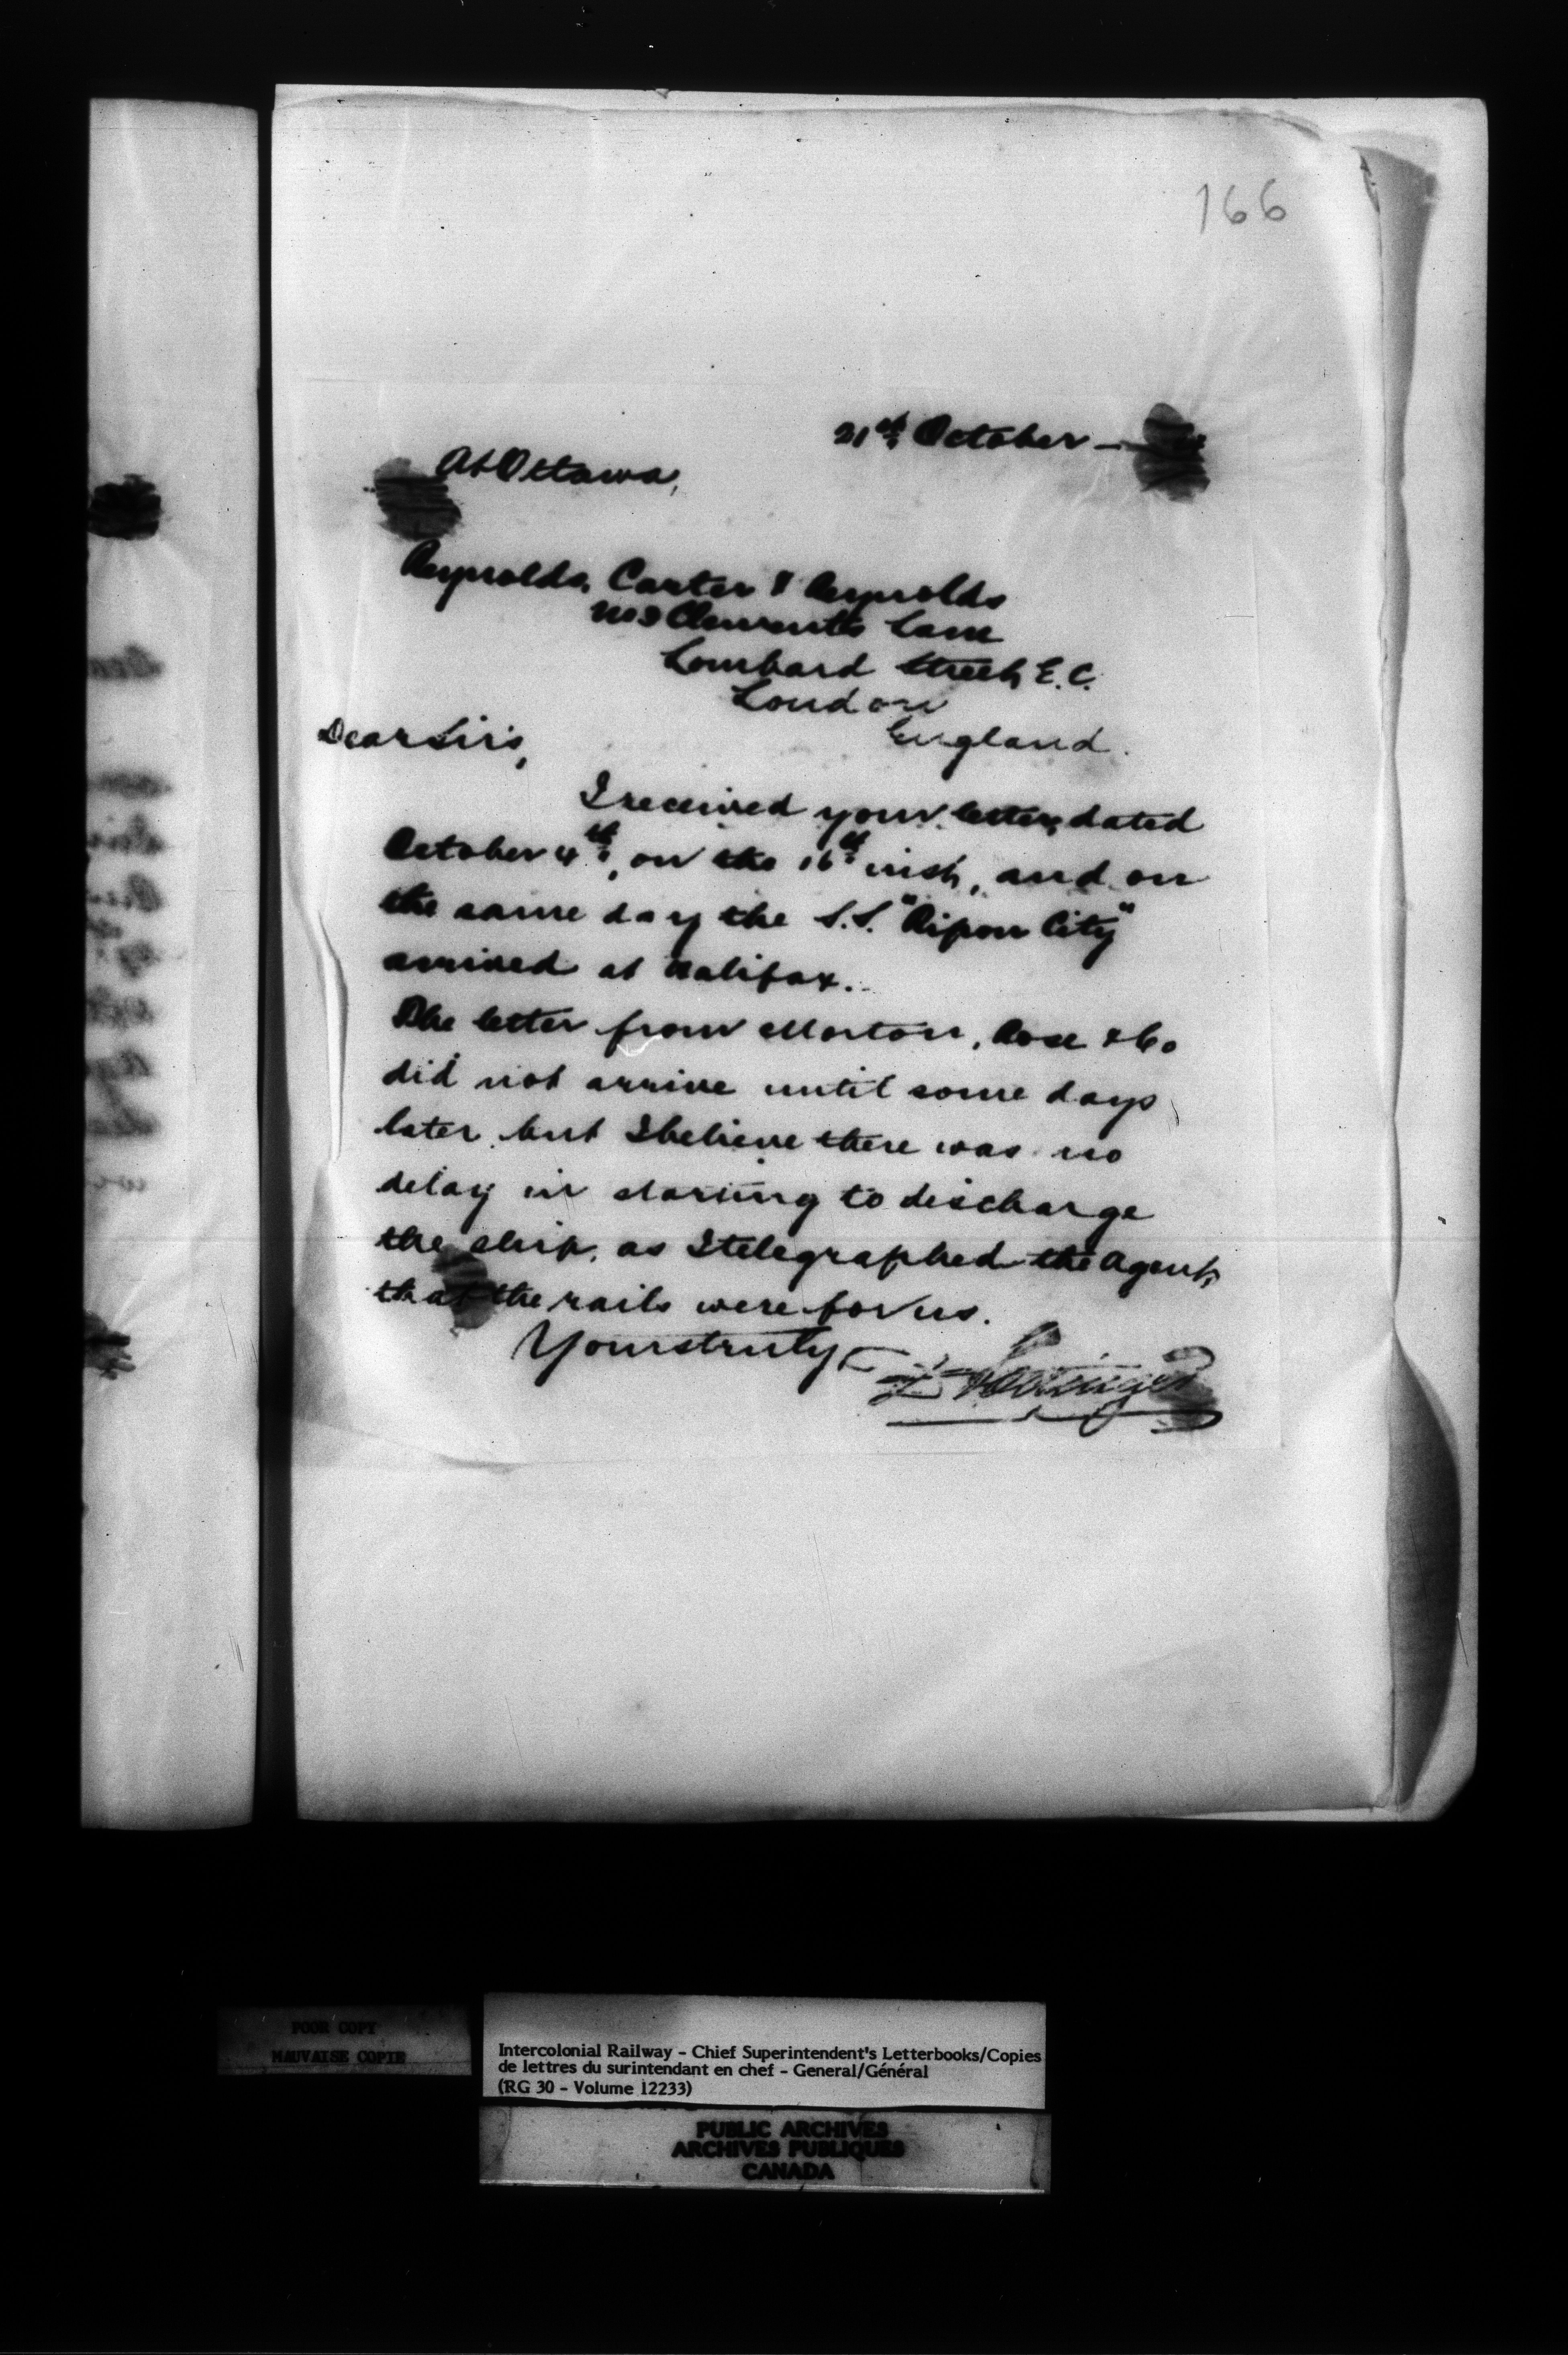 166
21st October —
At Ottawa,
Reynolds, Carter & Reynolds
No 3 Clements Lane
Lombard Street, E.C.
London
England.
Dear Sirs,
I received your letter, dated
October 4th, on the 16th inst, and on
the same day the S.S. "Ripon City"
arrived at Halifax.
The letter from Morton, Rose & Co
did not arrive until some days
later, but I believe there was no
delay in starting to discharge
the ship, as I telegraphed the Agent,
that the rails were for us.
Yours truly
D Pottinger
POOR COPY
MAUVAISE COPIE
Intercolonial Railway - Chief Superintendent's Letterbooks/Copies
de lettres du surintendant en chef - General/Général
(RG 30 - Volume 12233)
PUBLIC ARCHIVES
ARCHIVES PUBLIQUES
CANADA